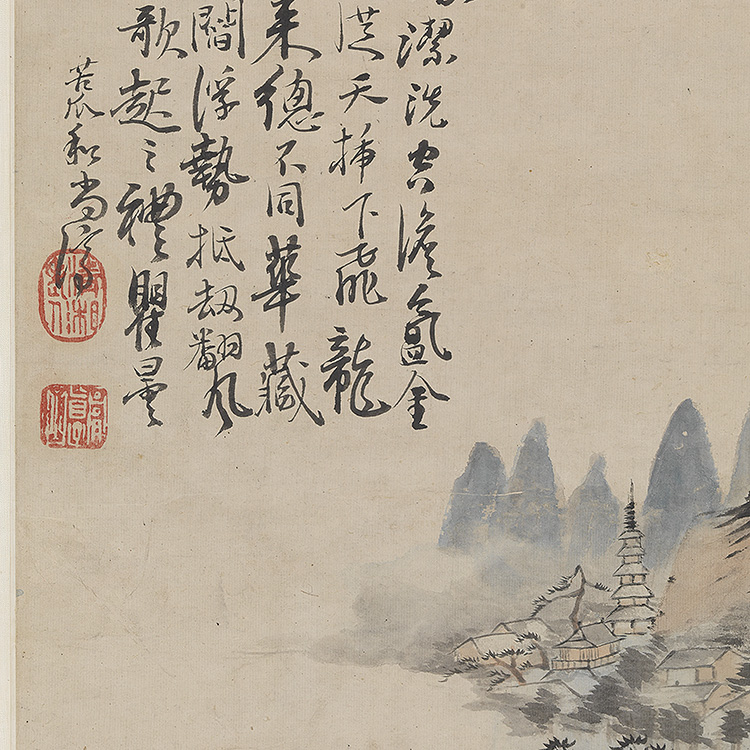 潔洗空濛氣金
從天插下飛龍
來總不同華藏
閻浮勢抵劫翻風
歌起之禮瞿曇
苦瓜和尚濟